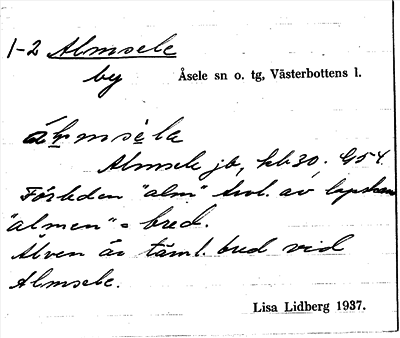 1-2 Almsele
by
Åsele sn o. tg, Västerbottens l.
Almsele jb, kb 30. G54
Förleden "alm" trol. av lapskan
"almen" = bred.
Älven är täml. bred vid
Almsele.
Lisa Lidberg 1937.